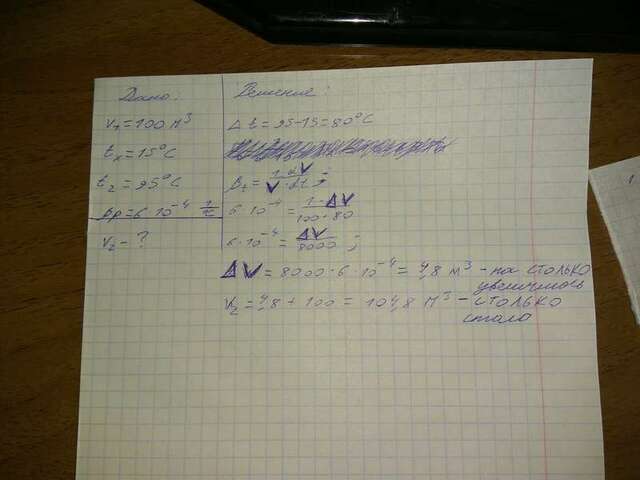 Дано:
V₁ = 100 м³
t₁ = 15°C
t₂ = 95°C
βp = 6 · 10⁻⁴ 1/°C
V₂ - ?
Решение:
Δt = 95 - 15 = 80°C
βt = 1 · ΔV / V · Δt ;
6 · 10⁻⁴ = 1 · ΔV / 100 · 80
6 · 10⁻⁴ = ΔV / 8000 ;
ΔV = 8000 · 6 · 10⁻⁴ = 4,8 м³ - на столько
увеличилось
V₂ = 4,8 + 100 = 104,8 м³ - столько
стало